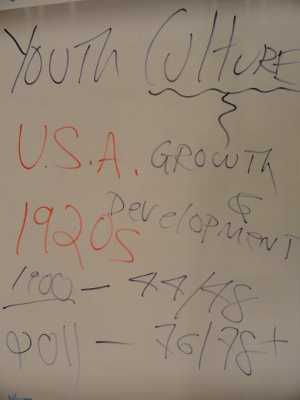 Youth Culture
U.S.A. Growth
&
1920s Development
1900 - 44/48
2011 - 76/78+